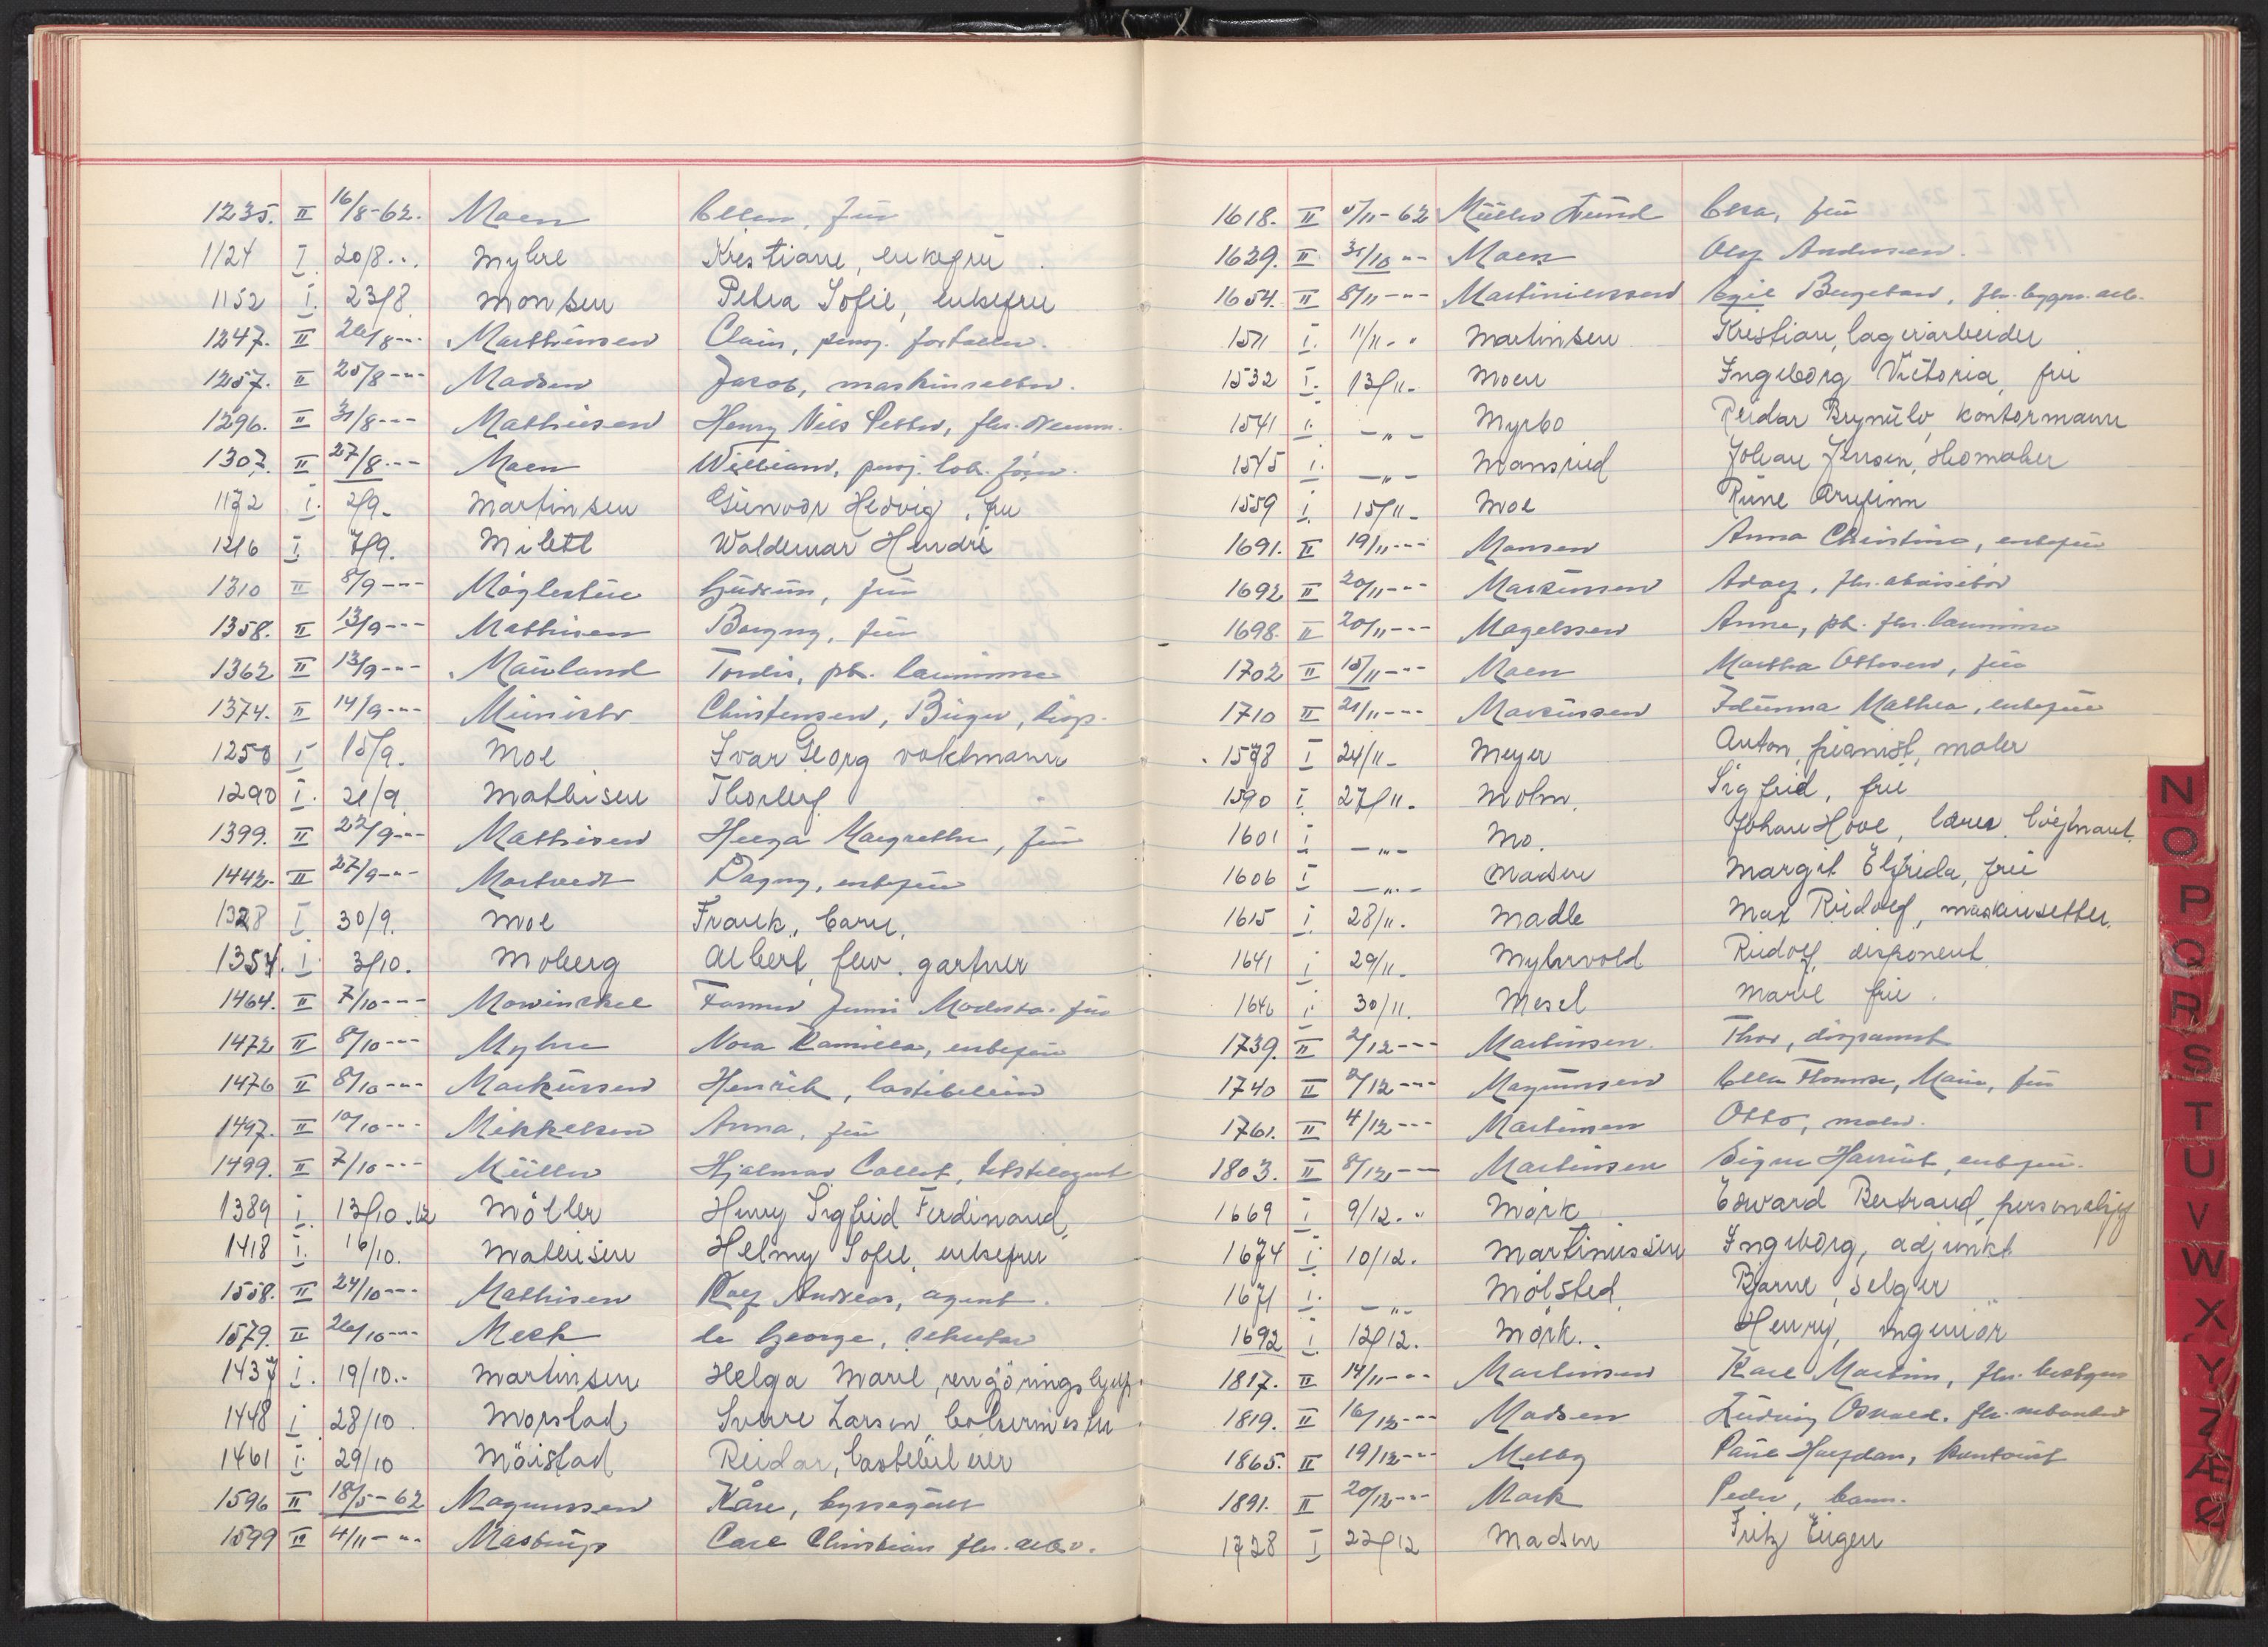 1235. II 16/8-62. Moen Ellen, frü
1124 I. 20/8... Myhre Kristiane, enkefrü.
1152 I. 23/8. Monsen Petra Sofie, enkefru
1247. II 26/8--- Marthinsen pens.
1257. II 25/8--- Madsen Jacob, maskinsetter.
1296. II 31/8--- Mathiesen Henry Nils Petter, fhv.
1307. II 27/8.-- Moen William, pensj.
1172 I. 2/9. Martinsen Gunvor Hedvig, fru
1216 I. 7/9. Miletl Waldemar Hendri
1310 II 8/9--- Møglestue Gudrun, frü
1358. II 13/9--- Mathisen Borgny, frü
1362 II 13/9--- Mauland Tordis, ph.
1374. II 14/9--- Münster Christensen, Birger, disp.
1250 I 15/9. Moe Ivar Georg vaktmann
1290 I. 21/9. Mathisen Thorleif
1399. II 22/9--- Mathisen Helga Margrethe, frü
1442. II 27/9--- Mortvedt Dagny, enkefrü
1328 I 30/9. Moe Frank, barn.
1354. I. 3/10. Moberg Albert, fhv. gartner
1464. II 7/10--- Mowinckel Fanny Modesta. frü
1472 II 8/10--- Myhre Nora Kamilla, enkefrü
1476 II 8/10--- Markussen Henrik,
1497. II 10/10--- Mikkelsen Anna, frü
1499. II 7/10--- Müller Hjalmar Collet,
1389 I. 13/10.62 Möller Henry Sigfrid Ferdinand.
1418 I. 16/10. Mathisen Helmy Sofie, enkefru
1558. II 24/10--- Mathisen Rolf Andreas, agent.
1579. II 26/10--- Meek le George,
1437 I. 19/10.. Martinsen Helga Marie, rengjöringshjelp.
1448 I 28/10. Morstad Sverre Larsen,
1461 I. 29/10 Möistad Reidar,
1596 II 18/5-62 Magnussen Kåre,
1599 II 4/11--- Mastrup Carl Christian fhv.
1618. II 5/11-62 Müller Lund Elsa, frü
1639. II 31/10 -- Moen Olf Andersen.
1654. II 8/11--- Martiniussen Egil fhv.
1571 I. 11/11.. Martinsen Kristian, lagerarbeider
1532 I. 13/11. Moen Ingeborg Victoria, frü
1541 I. -"- Myrbo Reidar Brynülv, kontormann
1545 I. -"- Monsrud Johan Jensen, skomaker
1559 I. 15/11. Moe Rune Arnfinn
1691. II 19/11--- Monsen Anna Christine, enkefrü
1692 II 20/11--- Markussen fhv.
1698. II 20/11--- Magelssen Anna, ph. fhv.
1702 II 15/11--- Moen Martha Ottosen, frü
1710 II 21/11--- Markussen Idunna Mathea, enkefrü
1578 I 24/11. Meyer Anton, pianist, maler
1590 I. 27/11. Molin. Sigfrid, frü
1601 I -"- Mo. Johan Hove, lærer,
1606 I -"- Madsen Margit Elfrida, frü
1615 I. 28/11. Madle Max Rudolf, maskinsetter.
1641 I 29/11. Myhrvold Rudolf, disponent
1646 I. 30/11. Mesel Marie frü.
1739. II 2/12--- Martinsen. Thor, disponent
1740 II 2/12--- Magnussen Ella Marie, frü
1761. II 4/12--- Martinsen Otto, maler.
1803. II 8/12.-- Martinsen Signe Harriet, enkefrü.
1669 I 9/12.. Mörk Edward Bertrand,
1674 I. 10/12. Martinussen Ingeborg, adjunkt
1671 I. -"- Mölsted. Bjarne, selger
1692 I. 12/12. Mörk.. Henry, ingeniör
1817. II 14/11--- Martinsen Karl Martin, fhv.
1819. II 16/12--- Madsen Ludvig Osvald. fhv.
1865. II 19/12--- Melby Paul Halfdan, kontorist
1891. II 20/12--- Mork Peder,
1728 I 22/12 Madsen Fritz Eugen
N
O
P
Q
R
S
T
U
V
W
X
Y
Z
Æ
Ø